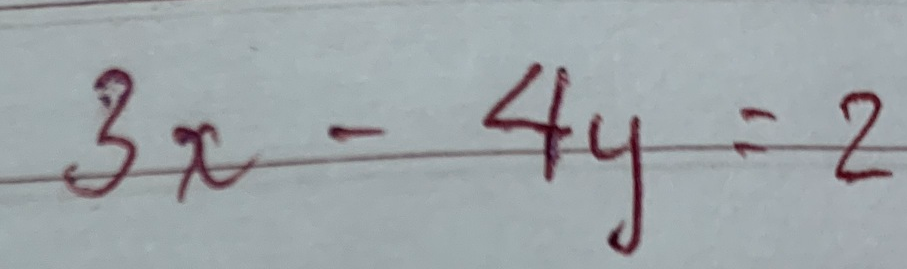 3x - 4y = 2